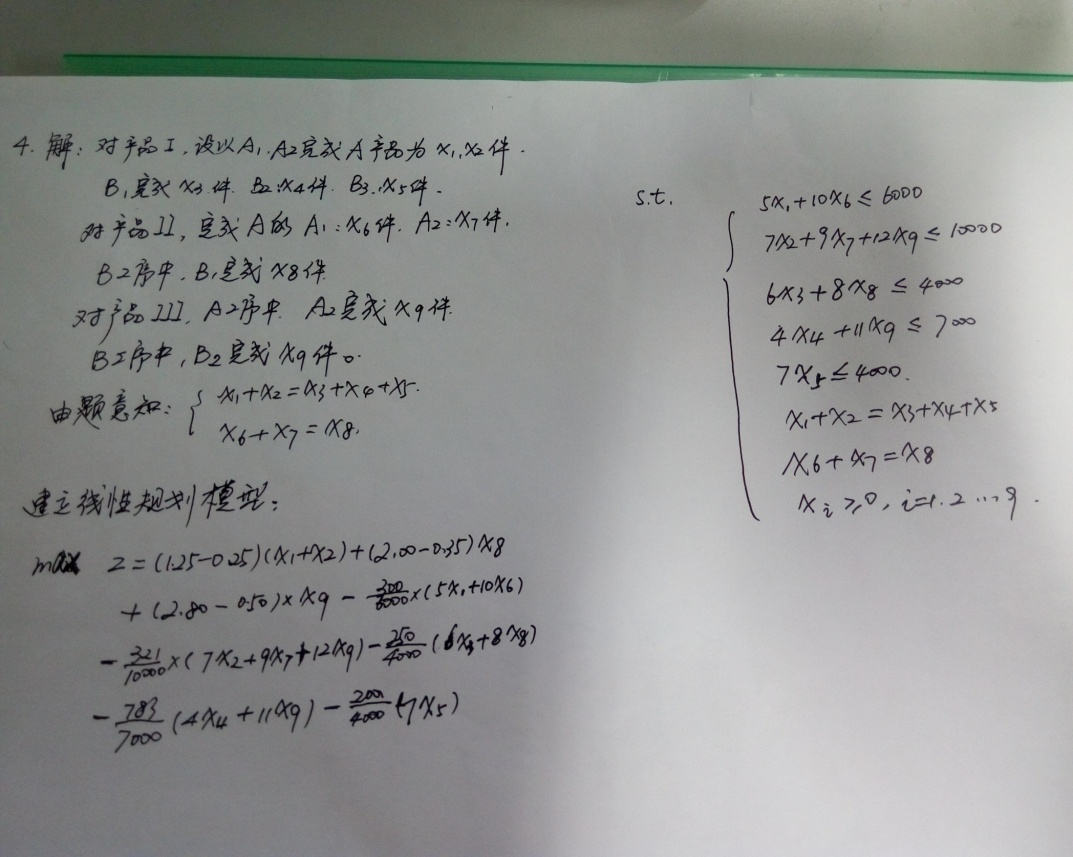 4. 解: 对产品I, 设以A1, A2完成A产品为x1, x2件.
B1完成x3件. B2:x4件. B3:x5件.
对产品II, 完成A的A1:x6件. A2:x7件.
B工序中, B1完成x8件
对产品III, A工序中 A2完成x9件.
B工序中, B2完成x9件。
由题意知: { x1+x2=x3+x4+x5.
x6+x7=x8.
建立线性规划模型:
max Z=(1.25-0.25)(x1+x2)+(2.00-0.35)x8
+(2.80-0.50)×x9 - 300/6000×(5x1+10x6)
- 321/10000×(7x2+9x7+12x9) - 250/4000(6x3+8x8)
- 783/7000(4x4+11x9) - 200/4000(7x5)
s.t.
5x1+10x6≤6000
7x2+9x7+12x9≤10000
6x3+8x8≤4000
4x4+11x9≤7000
7x5≤4000.
x1+x2=x3+x4+x5
x6+x7=x8
xi≥0, i=1.2…9.